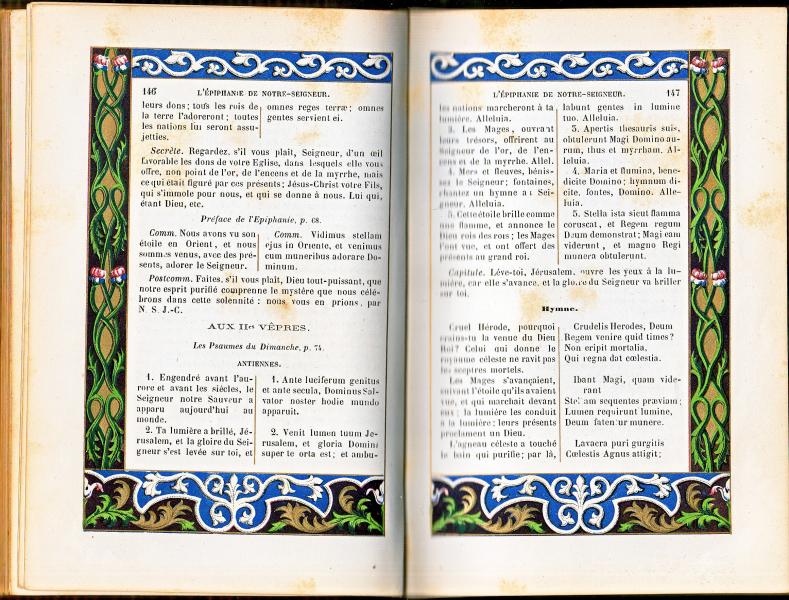 146
L'ÉPIPHANIE DE NOTRE-SEIGNEUR.
leurs dons; tous les rois de
la terre l'adoreront; toutes
les nations lui seront assu-
jetties.
omnes reges terræ; omnes
gentes servient ei.
Secrète. Regardez, s'il vous plaît, Seigneur, d'un œil
favorable les dons de votre Eglise, dans lesquels elle vous
offre, non point de l'or, de l'encens et de la myrrhe, mais
ce qui était figuré par ces présents; Jésus-Christ votre Fils,
qui s'immole pour nous, et qui se donne à nous. Lui qui,
étant Dieu, etc.
Préface de l'Epiphanie, p. 68.
Comm. Nous avons vu son
étoile en Orient, et nous
sommes venus, avec des pré-
sents, adorer le Seigneur.
Comm. Vidimus stellam
ejus in Oriente, et venimus
cum muneribus adorare Do-
minum.
Postcomm. Faites, s'il vous plaît, Dieu tout-puissant, que
notre esprit purifié comprenne le mystère que nous célé-
brons dans cette solennité : nous vous en prions, par
N. S. J.-C.
AUX IIes VÊPRES.
Les Psaumes du Dimanche, p. 74.
ANTIENNES.
1. Engendré avant l'au-
rore et avant les siècles, le
Seigneur notre Sauveur a
apparu aujourd'hui au
monde.
2. Ta lumière a brillé, Jé-
rusalem, et la gloire du Sei-
gneur s'est levée sur toi, et
1. Ante luciferum genitus
et ante secula, Dominus Sal-
vator noster hodie mundo
apparuit.
2. Venit lumen tuum Je-
rusalem, et gloria Domini
super te orta est; et ambu-
L'ÉPIPHANIE DE NOTRE-SEIGNEUR.
147
les nations marcheront à ta
lumière. Alleluia.
3. Les Mages, ouvrant
leurs trésors, offrirent au
Seigneur de l'or, de l'en-
cens et de la myrrhe. Allel.
4. Mers et fleuves, bénis-
sez le Seigneur; fontaines,
chantez un hymne au Sei-
gneur. Alleluia.
5. Cette étoile brille comme
une flamme, et annonce le
Dieu rois des rois; les Mages
l'ont vue, et ont offert des
présents au grand roi.
labunt gentes in lumine
tuo. Alleluia.
3. Apertis thesauris suis,
obtulerunt Magi Domino au-
rum, thus et myrrham. Al-
leluia.
4. Maria et flumina, bene-
dicite Domino; hymnum di-
cite, fontes, Domino. Alle-
luia.
5. Stella ista sicut flamma
coruscat, et Regem regum
Deum demonstrat; Magi eam
viderunt, et magno Regi
munera obtulerunt.
Capitule. Lève-toi, Jérusalem, ouvre les yeux à la lu-
mière, car elle s'avance, et la gloire du Seigneur va briller
sur toi.
Hymne.
Cruel Hérode, pourquoi
crains-tu la venue du Dieu
Roi? Celui qui donne le
royaume céleste ne ravit pas
les sceptres mortels.
Les Mages s'avançaient,
suivant l'étoile qu'ils avaient
vue, et qui marchait devant
eux; la lumière les conduit
à la lumière; leurs présents
proclament un Dieu.
L'agneau céleste a touché
le bain qui purifie; par là,
Crudelis Herodes, Deum
Regem venire quid times?
Non eripit mortalia,
Qui regna dat cœlestia.
Ibant Magi, quam vide-
rant
Stellam sequentes præviam;
Lumen requirunt lumine,
Deum fatentur munere.
Lavacra puri gurgitis
Cœlestis Agnus attigit;